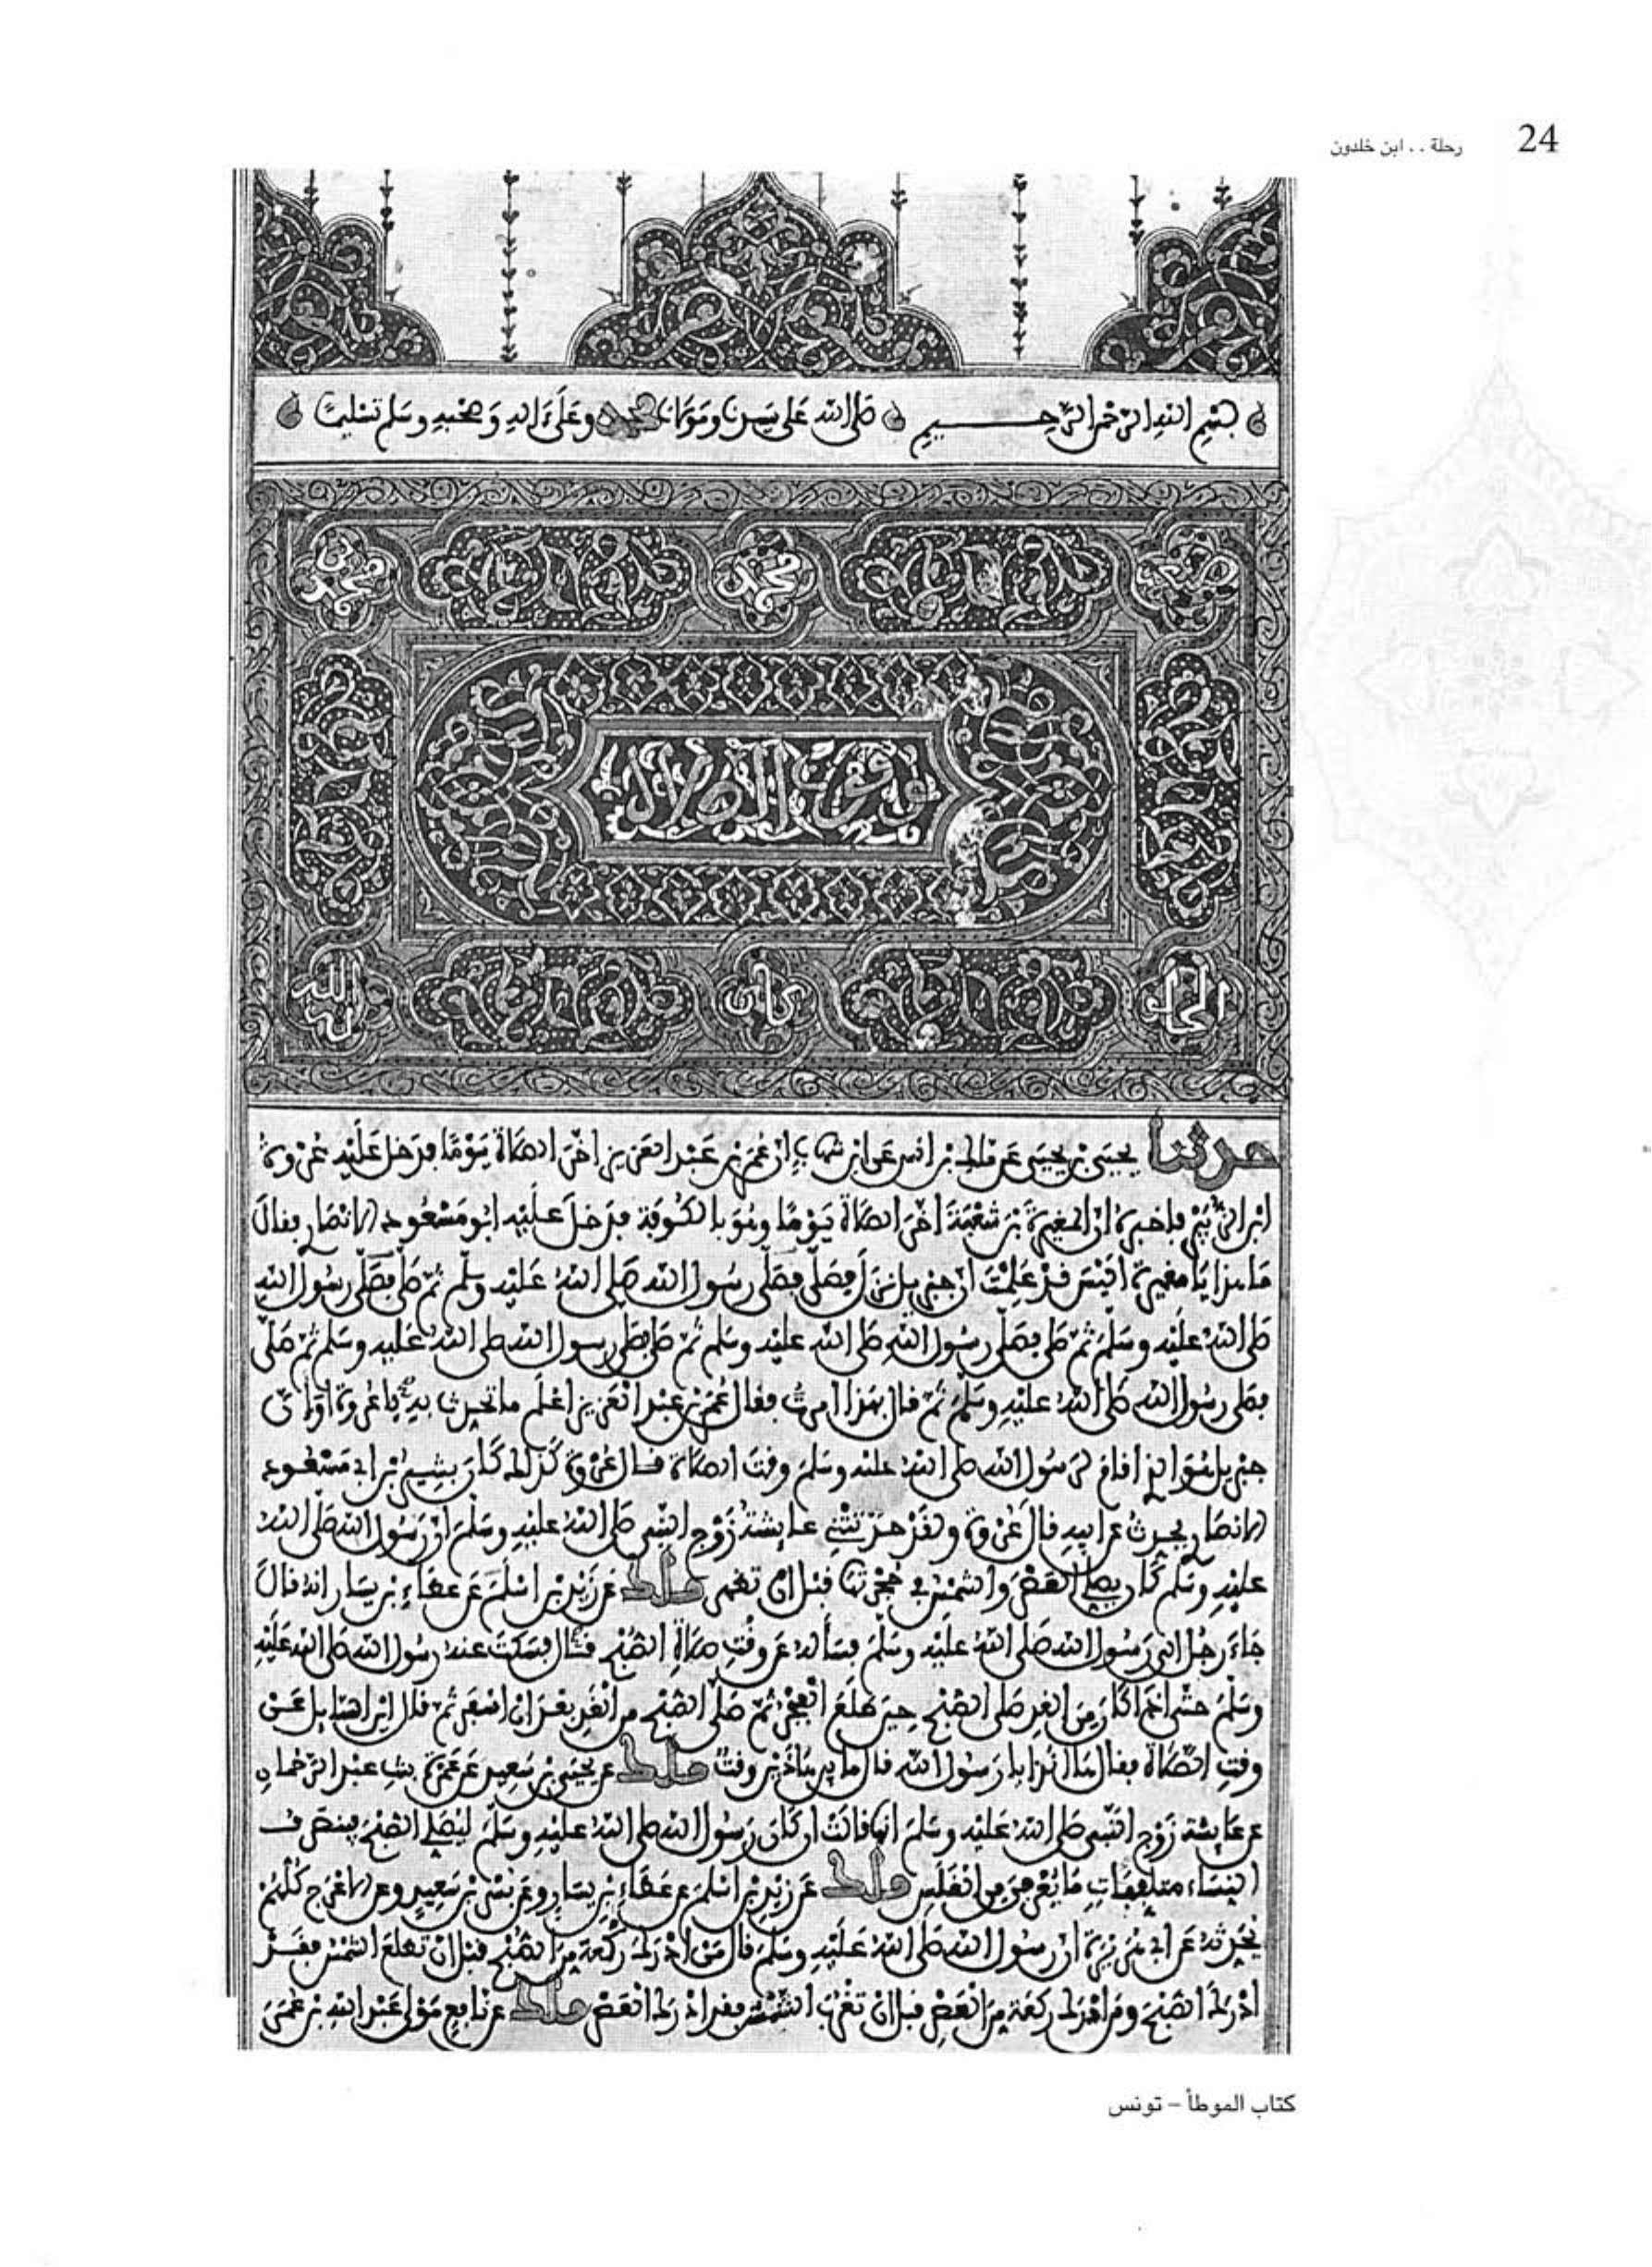 24 رحلة . . ابن خلدون
بسم الله الرحمن الرحيم صلى الله على سيدنا ومولانا محمد وعلى ءاله وصحبه وسلم تسليما
محمد
وقوت الصلاة
كان
الله
حدثنا يحيى بن يحيى عن ملك بن انس عن ابن شهاب ان عمر بن عبد العزيز اخر الصلاة يوما فدخل عليه عروة
ابن الزبير فاخبره ان المغيرة بن شعبة اخر الصلاة يوما وهو بالكوفة فدخل عليه ابو مسعود الانصاري فقال
ما هذا يا مغيرة اليس قد علمت ان جبريل نزل فصلى فصلى رسول الله صلى الله عليه وسلم ثم صلى فصلى رسول الله
صلى الله عليه وسلم ثم صلى فصلى رسول الله صلى الله عليه وسلم ثم صلى فصلى رسول الله صلى الله عليه وسلم ثم صلى
فصلى رسول الله صلى الله عليه وسلم ثم قال بهذا امرت فقال عمر بن عبد العزيز اعلم ما تحدث به يا عروة او ان
جبريل هو الذي اقام لرسول الله صلى الله عليه وسلم وقت الصلاة قال عروة كذلك كان بشير بن ابي مسعود
الانصاري يحدث عن ابيه قال عروة ولقد حدثتني عايشة زوج النبي صلى الله عليه وسلم ان رسول الله صلى الله
عليه وسلم كان يصلي العصر والشمس في حجرتها قبل ان تظهر ملك عن زيد بن اسلم عن عطاء بن يسار انه قال
جاء رجل الى رسول الله صلى الله عليه وسلم فساله عن وقت صلاة الصبح قال فسكت عنه رسول الله صلى الله عليه
وسلم حتى اذا كان من الغد صلى الصبح حين طلع الفجر ثم صلى الصبح من الغد بعد ان اسفر ثم قال اين السايل عن
وقت الصلاة فقال هاانذا يا رسول الله فقال ما بين هاذين وقت ملك عن يحيى بن سعيد عن عمرة بنت عبد الرحمان
عن عايشة زوج النبي صلى الله عليه وسلم انها قالت ان كان رسول الله صلى الله عليه وسلم ليصلي الصبح فينصرف
النساء متلفعات ما يعرفن من الغلس ملك عن زيد بن اسلم عن عطاء بن يسار وعن بسر بن سعيد وعن الاعرج كلهم
يحدثه عن ابي هريرة ان رسول الله صلى الله عليه وسلم قال من ادرك ركعة من الصبح قبل ان تطلع الشمس فقد
ادرك الصبح ومن ادرك ركعة من العصر قبل ان تغرب الشمس فقد ادرك العصر ملك عن نافع مولى عبد الله بن عمر
كتاب الموطأ – تونس